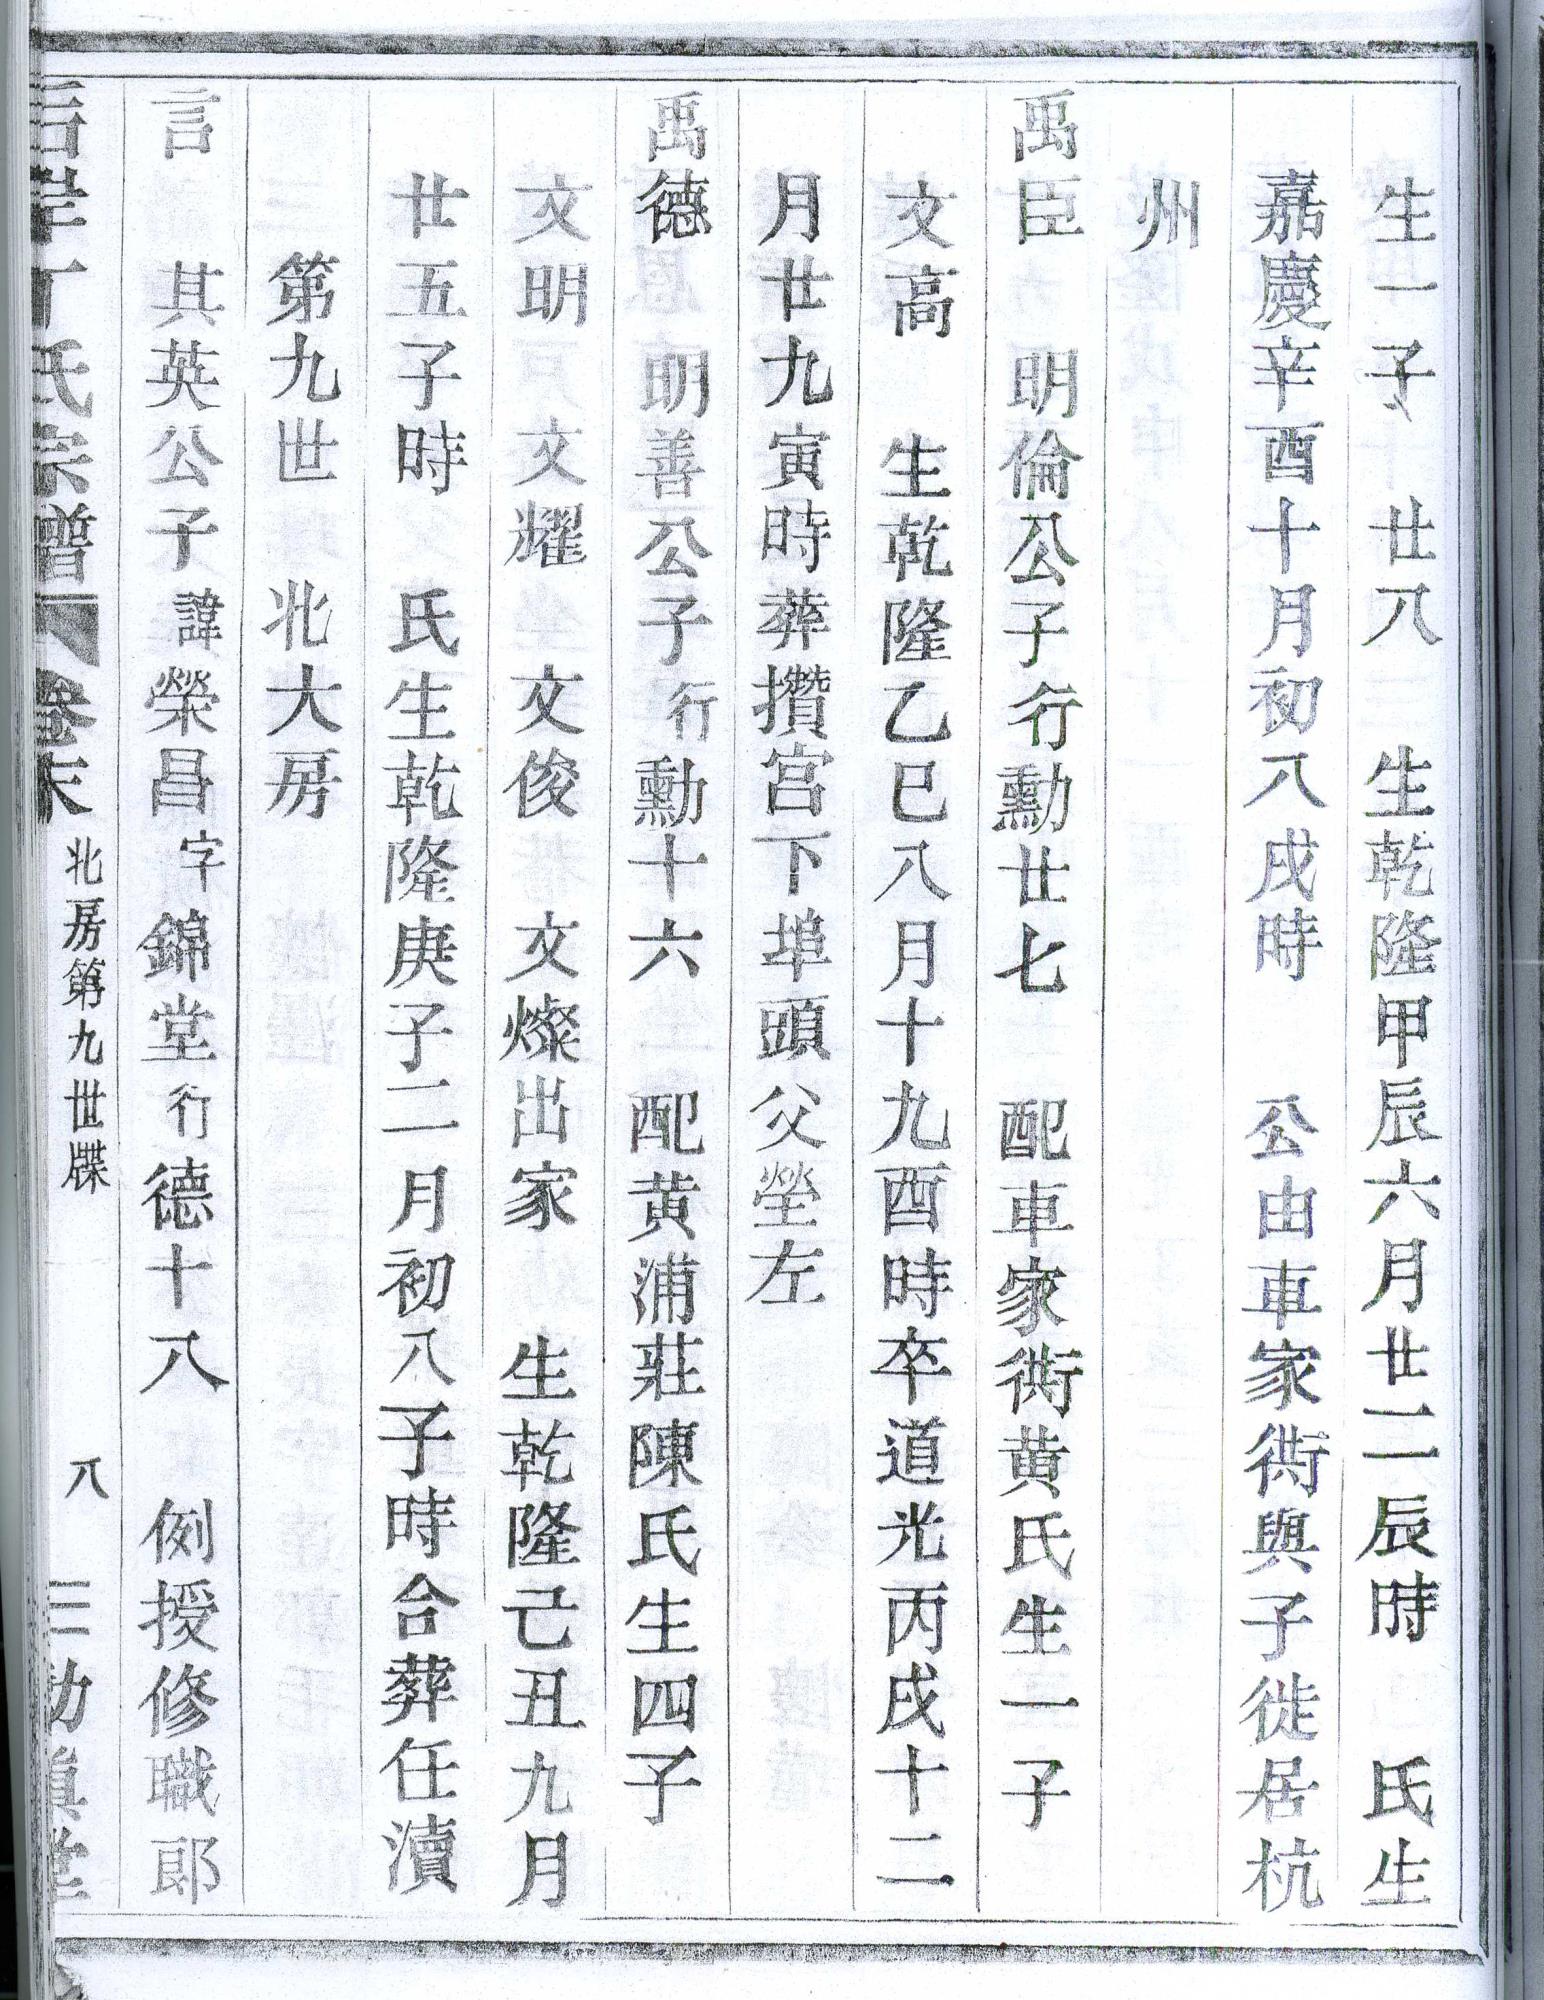 生一子　廿八　生乾隆甲辰六月廿二辰時　氏生
嘉慶辛酉十月初八戌時　公由車家衖與子徙居杭
州
禹臣　明倫公子行勳廿七　配車家衖黄氏生一子
文高　生乾隆乙巳八月十九酉時卒道光丙戌十二
月廿九寅時葬攢宫下埠頭父塋左
禹德　明善公子行勳十六　配黄浦莊陳氏生四子
文明　文耀　文俊　文燦出家　生乾隆己丑九月
廿五子時　氏生乾隆庚子二月初八子時合葬任瀆
第九世　北大房
言　其英公子諱榮昌字錦堂行德十八　例授修職郎
丁氏宗譜　卷末　北房第九世牒　八　堂